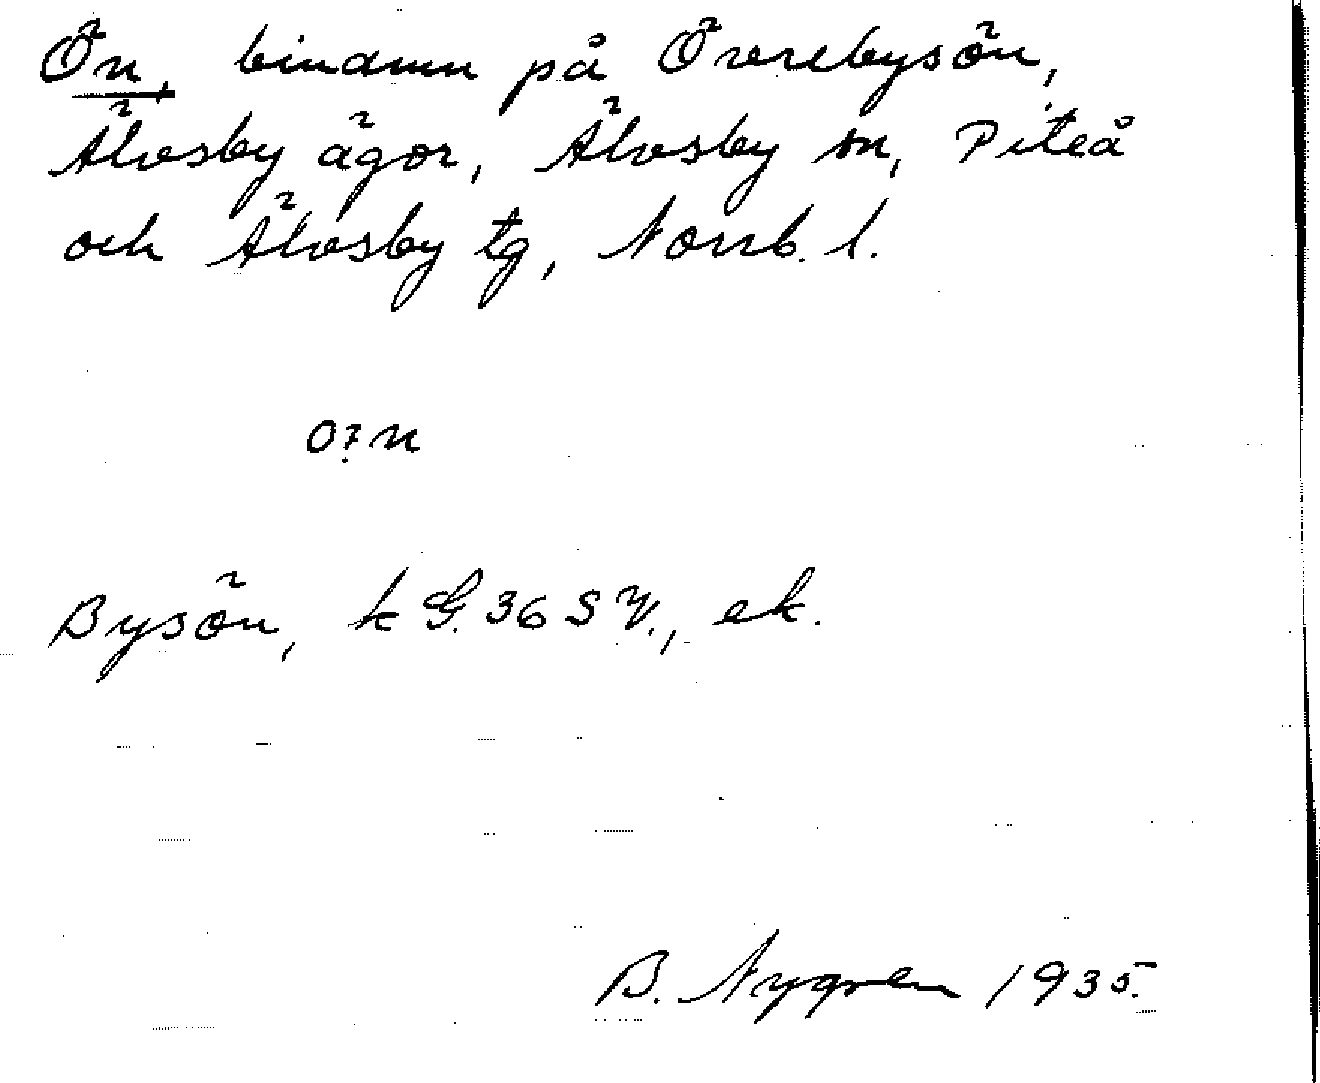 Ön, bindmn på Överebysön,
Älvsby ägor, Älvsby sn, Piteå
och Älvsby tg, Norrb. l.
Bysön, k G. 36 S V., ek.
B. Nygren 1935.